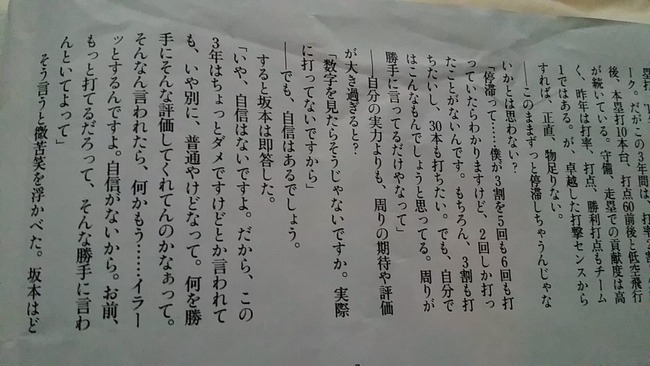 塁打
ーク。だがこの3年間は、打率
後、本塁打10本台、打点60前後と低空飛行
が続いている。守備、走塁での貢献度は高
く、昨年は打率、打点、勝利打点もチーム
1ではある。が、卓越した打撃センスから
すれば、正直、物足りない。
──このままずっと停滞しちゃうんじゃな
いかとは思わない?
「停滞って……僕が3割を5回も6回も打
っていたらわかりますけど、2回しか打っ
たことがないんです。もちろん、3割も打
ちたいし、30本も打ちたい。でも、自分で
はこんなもんでしょうと思ってる。周りが
勝手に言ってるだけやなって」
──自分の実力よりも、周りの期待や評価
が大き過ぎると?
「数字を見たらそうじゃないですか。実際
に打ってないですから」
──でも、自信はあるでしょう。
すると坂本は即答した。
「いや、自信はないですよ。だから、この
3年はちょっとダメですけどとか言われて
も、いや別に、普通やけどなって。何を勝
手にそんな評価してくれてんのかなぁって。
そんなん言われたら、何かもう……イラー
ッとするんですよ。自信がないから。お前、
もっと打てるだろって、そんな勝手に言わ
んといてよって」
そう言うと微苦笑を浮かべた。坂本はど